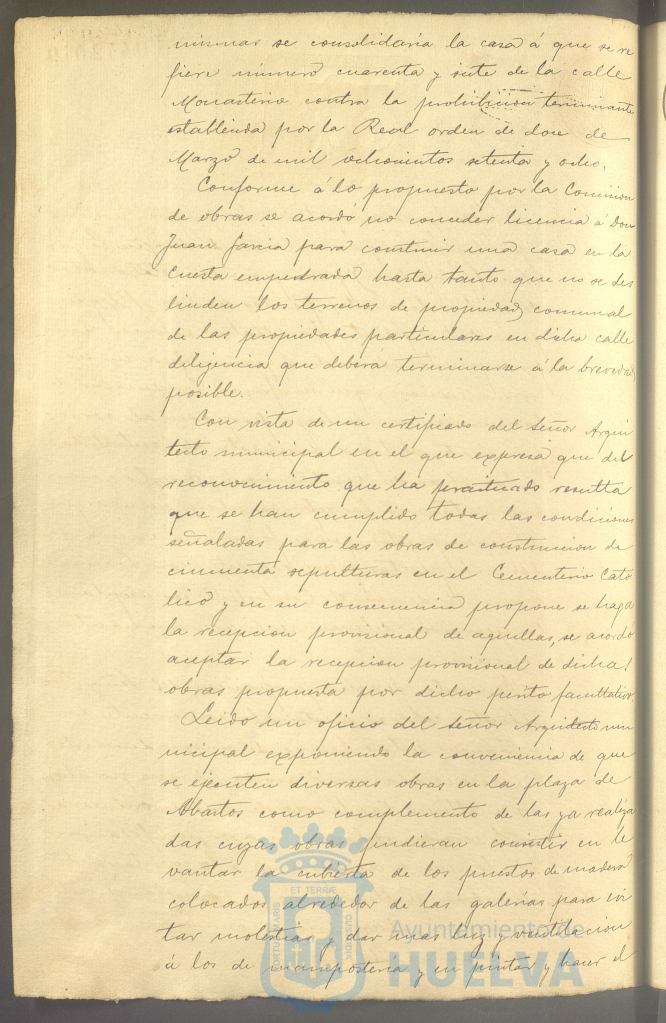 mismas se consolidaria la casa á que se re
fiere número cuarenta y siete de la calle
Monasterio contra la prohibicion terminante
establecida por la Real orden de doce de
Marzo de mil ochocientos setenta y ocho.
Conforme á lo propuesto por la Comision
de obras se acordó no conceder licencia á Don
Juan Garcia para construir una casa en la
Cuesta empedrada hasta tanto que no se des
linden los terrenos de propiedad comunal
de las propiedades particulares en dicha calle
diligencia que deberá terminarse á la brevedad
posible.
Con vista de un certificado del Señor Arqui
tecto municipal en el que expresa que del
reconocimiento que ha practicado resulta
que se han cumplido todas las condiciones
señaladas para las obras de construccion de
cincuenta sepulturas en el Cementerio Cató
lico y en su consecuencia propone se haga
la recepcion provisional de aquellas, se acordó
aceptar la recepcion provisional de dichas
obras propuesta por dicho perito facultativo
Leido un oficio del Señor Arquitecto mu
nicipal exponiendo la conveniencia de que
se ejecuten diversas obras en la plaza de
Abastos como complemento de las ya realiza
das cuyas obras pudieran consistir en le
vantar la cubierta de los puestos de madera
colocados alrededor de las galerias para evi
tar molestias y dar mas luz y ventilacion
á los de mamposteria y en pintar y hacer el
ET TERRÆ
PORTUS MARIS
CUSTODIA
Ayuntamiento de
HUELVA